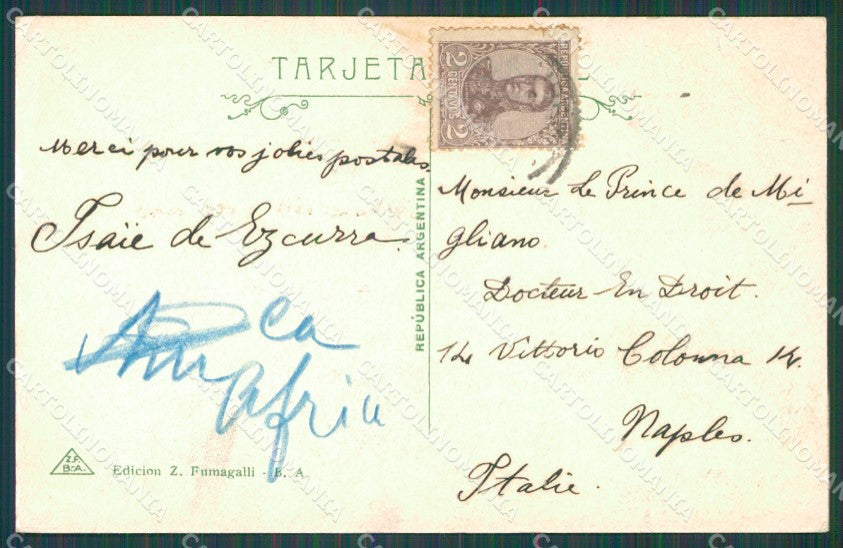 TARJETA
REPÚBLICA ARGENTINA
2 CENTAVOS 2
Merci pour vos jolies postales.
Isaïe de Ezcurra.
ca
Afri
Monsieur Le Prince de Mi-
gliano
Docteur En Droit.
14 Vittorio Colonna 14.
Naples.
Italie.
REPÚBLICA ARGENTINA
Z.F.
B.A.
Edicion Z. Fumagalli - B. A.
CARTOLINOMANIA